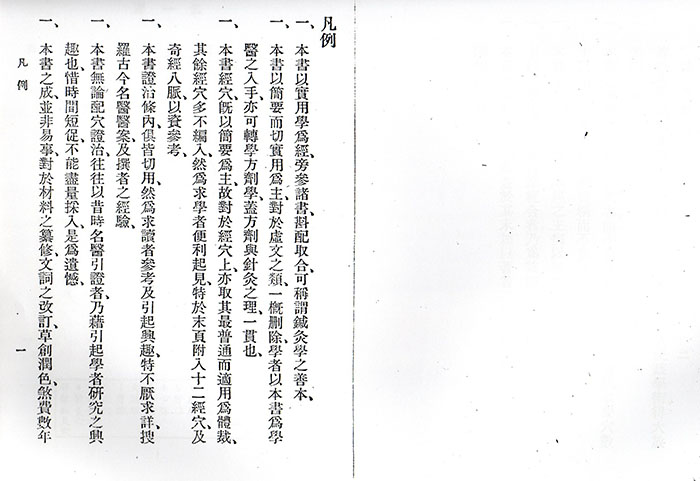 凡例
一、本書以實用學爲經旁參諸書斟配取合可稱謂鍼灸學之善本、
一、本書以簡要而切實用爲主對於虛文之類一槪删除學者以本書爲學
醫之入手亦可轉學方劑學蓋方劑與針灸之理一貫也、
一、本書經穴旣以簡要爲主故對於經穴上亦取其最普通而適用爲體裁、
其餘經穴多不編入然爲求學者便利起見特於末頁附入十二經穴及
奇經八脈以資參考、
一、本書證治條內俱皆切用、然爲求讀者參考及引起興趣特不厭求詳、搜
羅古今名醫醫案及撰者之經驗、
一、本書無論配穴證治往往以昔時名醫引證者、乃藉引起學者研究之興
趣也、惜時間短促不能盡量採入是爲遺憾、
一、本書之成、並非易事、對於材料之纂修、文詞之改訂、草創潤色、煞費數年
凡例
一